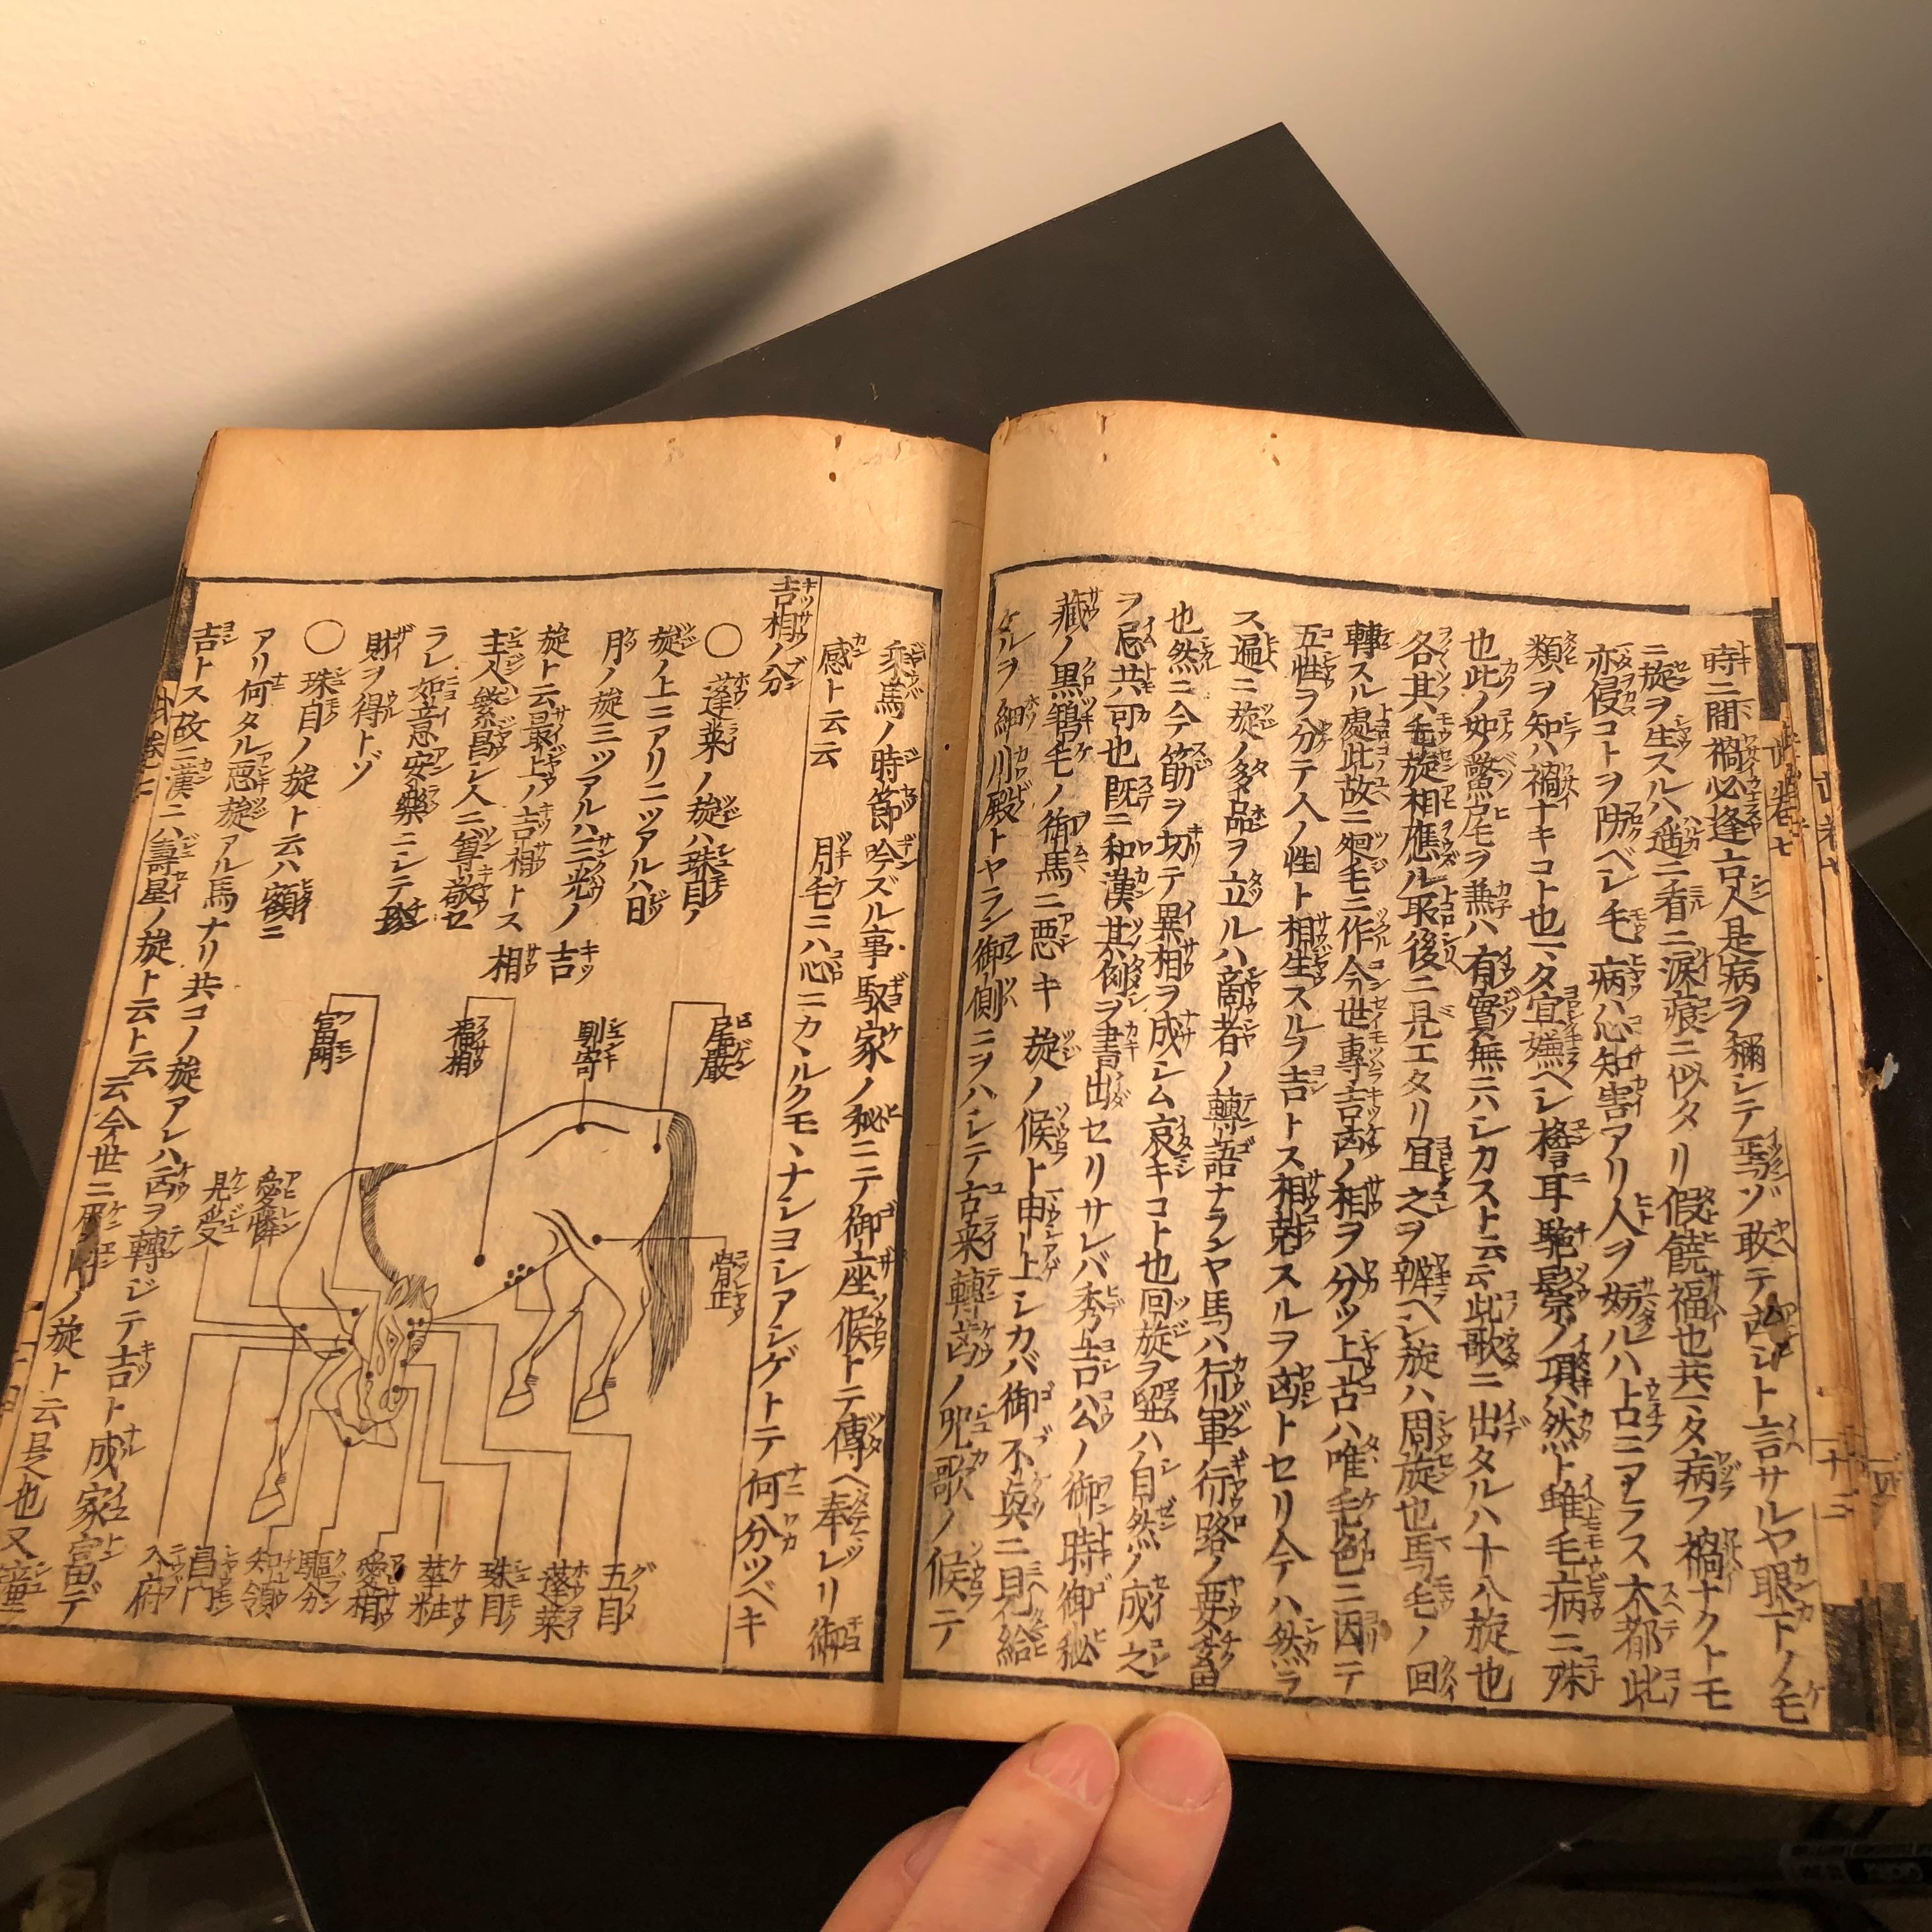 時ニ聞禍必逢吉人是病ヲ稱シテ焉ゾ敢テ凶シト言サルヤ眼下ノ毛
ニ旋ヲ生スルハ遙ニ看ニ涙痕ニ似タリ假饒福也共ニタ病フ禍ナクトモ
亦侵コトヲ防ベシ毛病ハ心知害アリ人ヲ妨ルハ占ニアラス太都此
類ヲ知ハ禍ナキコト也マタ宜嫌ヘシ檐耳駞影ノ項ハ然ト雖毛病ニ殊
也此ノ如鱉尾毛ヲ兼ハ有實無ニハシカスト云云此歌ニ出タルハ十八旋也
各其毛旋相應ル最後ニ見エタリ宜之ヲ辨ヘシ旋ハ周旋也馬毛ノ回
轉スル處此故ニ廻毛ニ作今世專吉凶ノ相ヲ分ツ上古ハ唯毛色ニ因テ
五性ヲ分テ人ノ性ト相生スルヲ吉トス相剋スルヲ凶トセリ今ハ然ラ
ス遍ニ旋ノ多品ヲ立ルハ商者ノ轉語ナランヤ馬ハ行軍行路ノ要畜
也然ニ今筋ヲ切テ異相ヲ成シム哀キコト也回旋ヲ望ハ自然ノ成之
ヲ忌共可也既ニ和漢其例ヲ書出セリサレバ秀吉公ノ御時御秘
藏ノ黒鶴毛ノ御馬ニ惡キ旋ノ候ト申上シカバ御不興ニ見給
ケルヲ細川殿トヤラン御側ニヲハシテ古来轉凶ノ呪歌ノ候ニテ
乗馬ノ時節吟ズル事馭家ノ秘ニテ御座候トテ傳ヘ奉レリ御
感ト云云 月毛ニハ心ニカヽルクモヽナシヨシアシゲトテ何分ツベキ
吉相ノ分
〇 蓬莱ノ旋ハ珠目ノ
旋ノ上ニアリニツアルハ日
月ノ旋三ツアルハ三光ノ
旋ト云最上ノ吉相トス
主人繁昌シ人ニ尊敬セ
ラレ如意安樂ニシテ珍
財ヲ得トゾ
〇 珠目ノ旋ト云ハ額ニ
アリ何タル惡旋アル馬ナリ共コノ旋アレハ凶ヲ轉ジテ吉ト成家富デ
吉トス故ニ漢ニハ壽星ノ旋ト云ト云云今世ニ所ノ旋ト云是也又
吉相
尾嚴
福相
富門
愛憐
見愛
骨正
五目
蓬莱
珠目
華粧
愛相
驅分
知領
昌門
入府